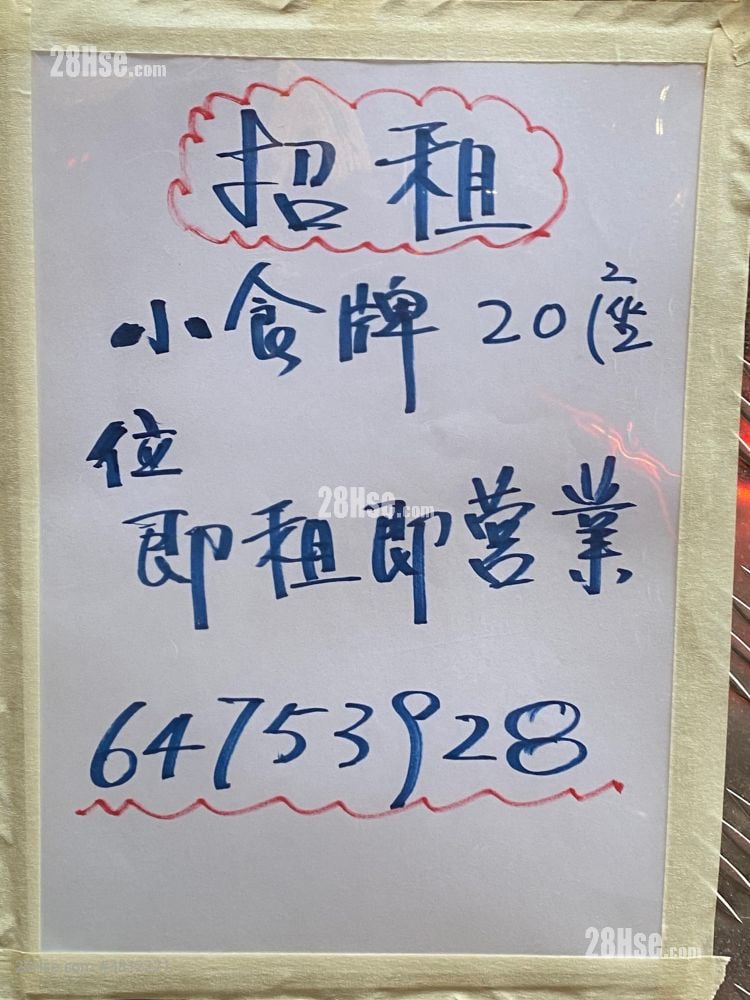 28Hse.com
招租
小食牌 20座
位
即租即营業
28Hse.com
64753928
28Hse.com